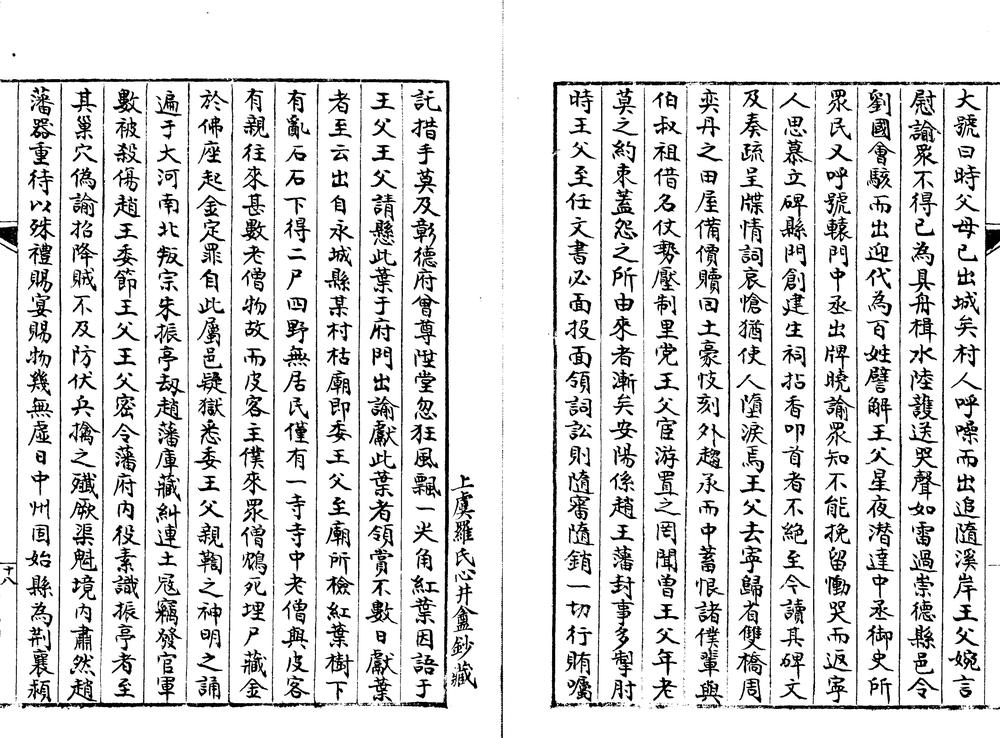 大號曰時父母已出城矣村人呼噪而出追隨溪岸王父婉言
慰諭眾不得已為具舟楫水陸護送哭聲如雷過崇德縣邑令
劉國會駭而出迎代為百姓譬解王父星夜潛達中丞御史所
眾民又呼號轅門中丞出牌曉諭眾知不能挽留慟哭而返寧
人思慕立碑縣門創建生祠拈香叩首者不絕至今讀其碑文
及奏疏呈牒情詞哀愴猶使人墮淚焉王父去寧歸省雙橋周
奕丹之田屋備價贖回土豪忮刻外趨承而中蓄恨諸僕輩與
伯叔祖借名仗勢壓制里党王父宦游置之罔聞曾王父年老
莫之約束蓋怨之所由來者漸矣安陽係趙王藩封事多掣肘
時王父至任文書必面投面領詞訟則隨審隨銷一切行賄囑
上虞羅氏心井盦鈔藏
託措手莫及彰德府曾尊陞堂忽狂風飄一尖角紅葉因語于
王父王父請懸此葉于府門出諭獻此葉者領賞不數日獻葉
者至云出自永城縣某村枯廟即委王父至廟所檢紅葉樹下
有亂石石下得二尸四野無居民僅有一寺寺中老僧與皮客
有親往來甚數老僧物故而皮客主僕來眾僧鴆死埋尸藏金
於佛座起金定罪自此屬邑疑獄悉委王父親鞫之神明之誦
遍于大河南北叛宗朱振亭刼趙藩庫藏糾連土冦竊發官軍
數被殺傷趙王委節王父王父密令藩府內役素識振亭者至
其巢穴偽諭招降賊不及防伏兵擒之殲厥渠魁境內肅然趙
藩器重待以殊禮賜宴賜物幾無虛日中州固始縣為荊襄頴
十八